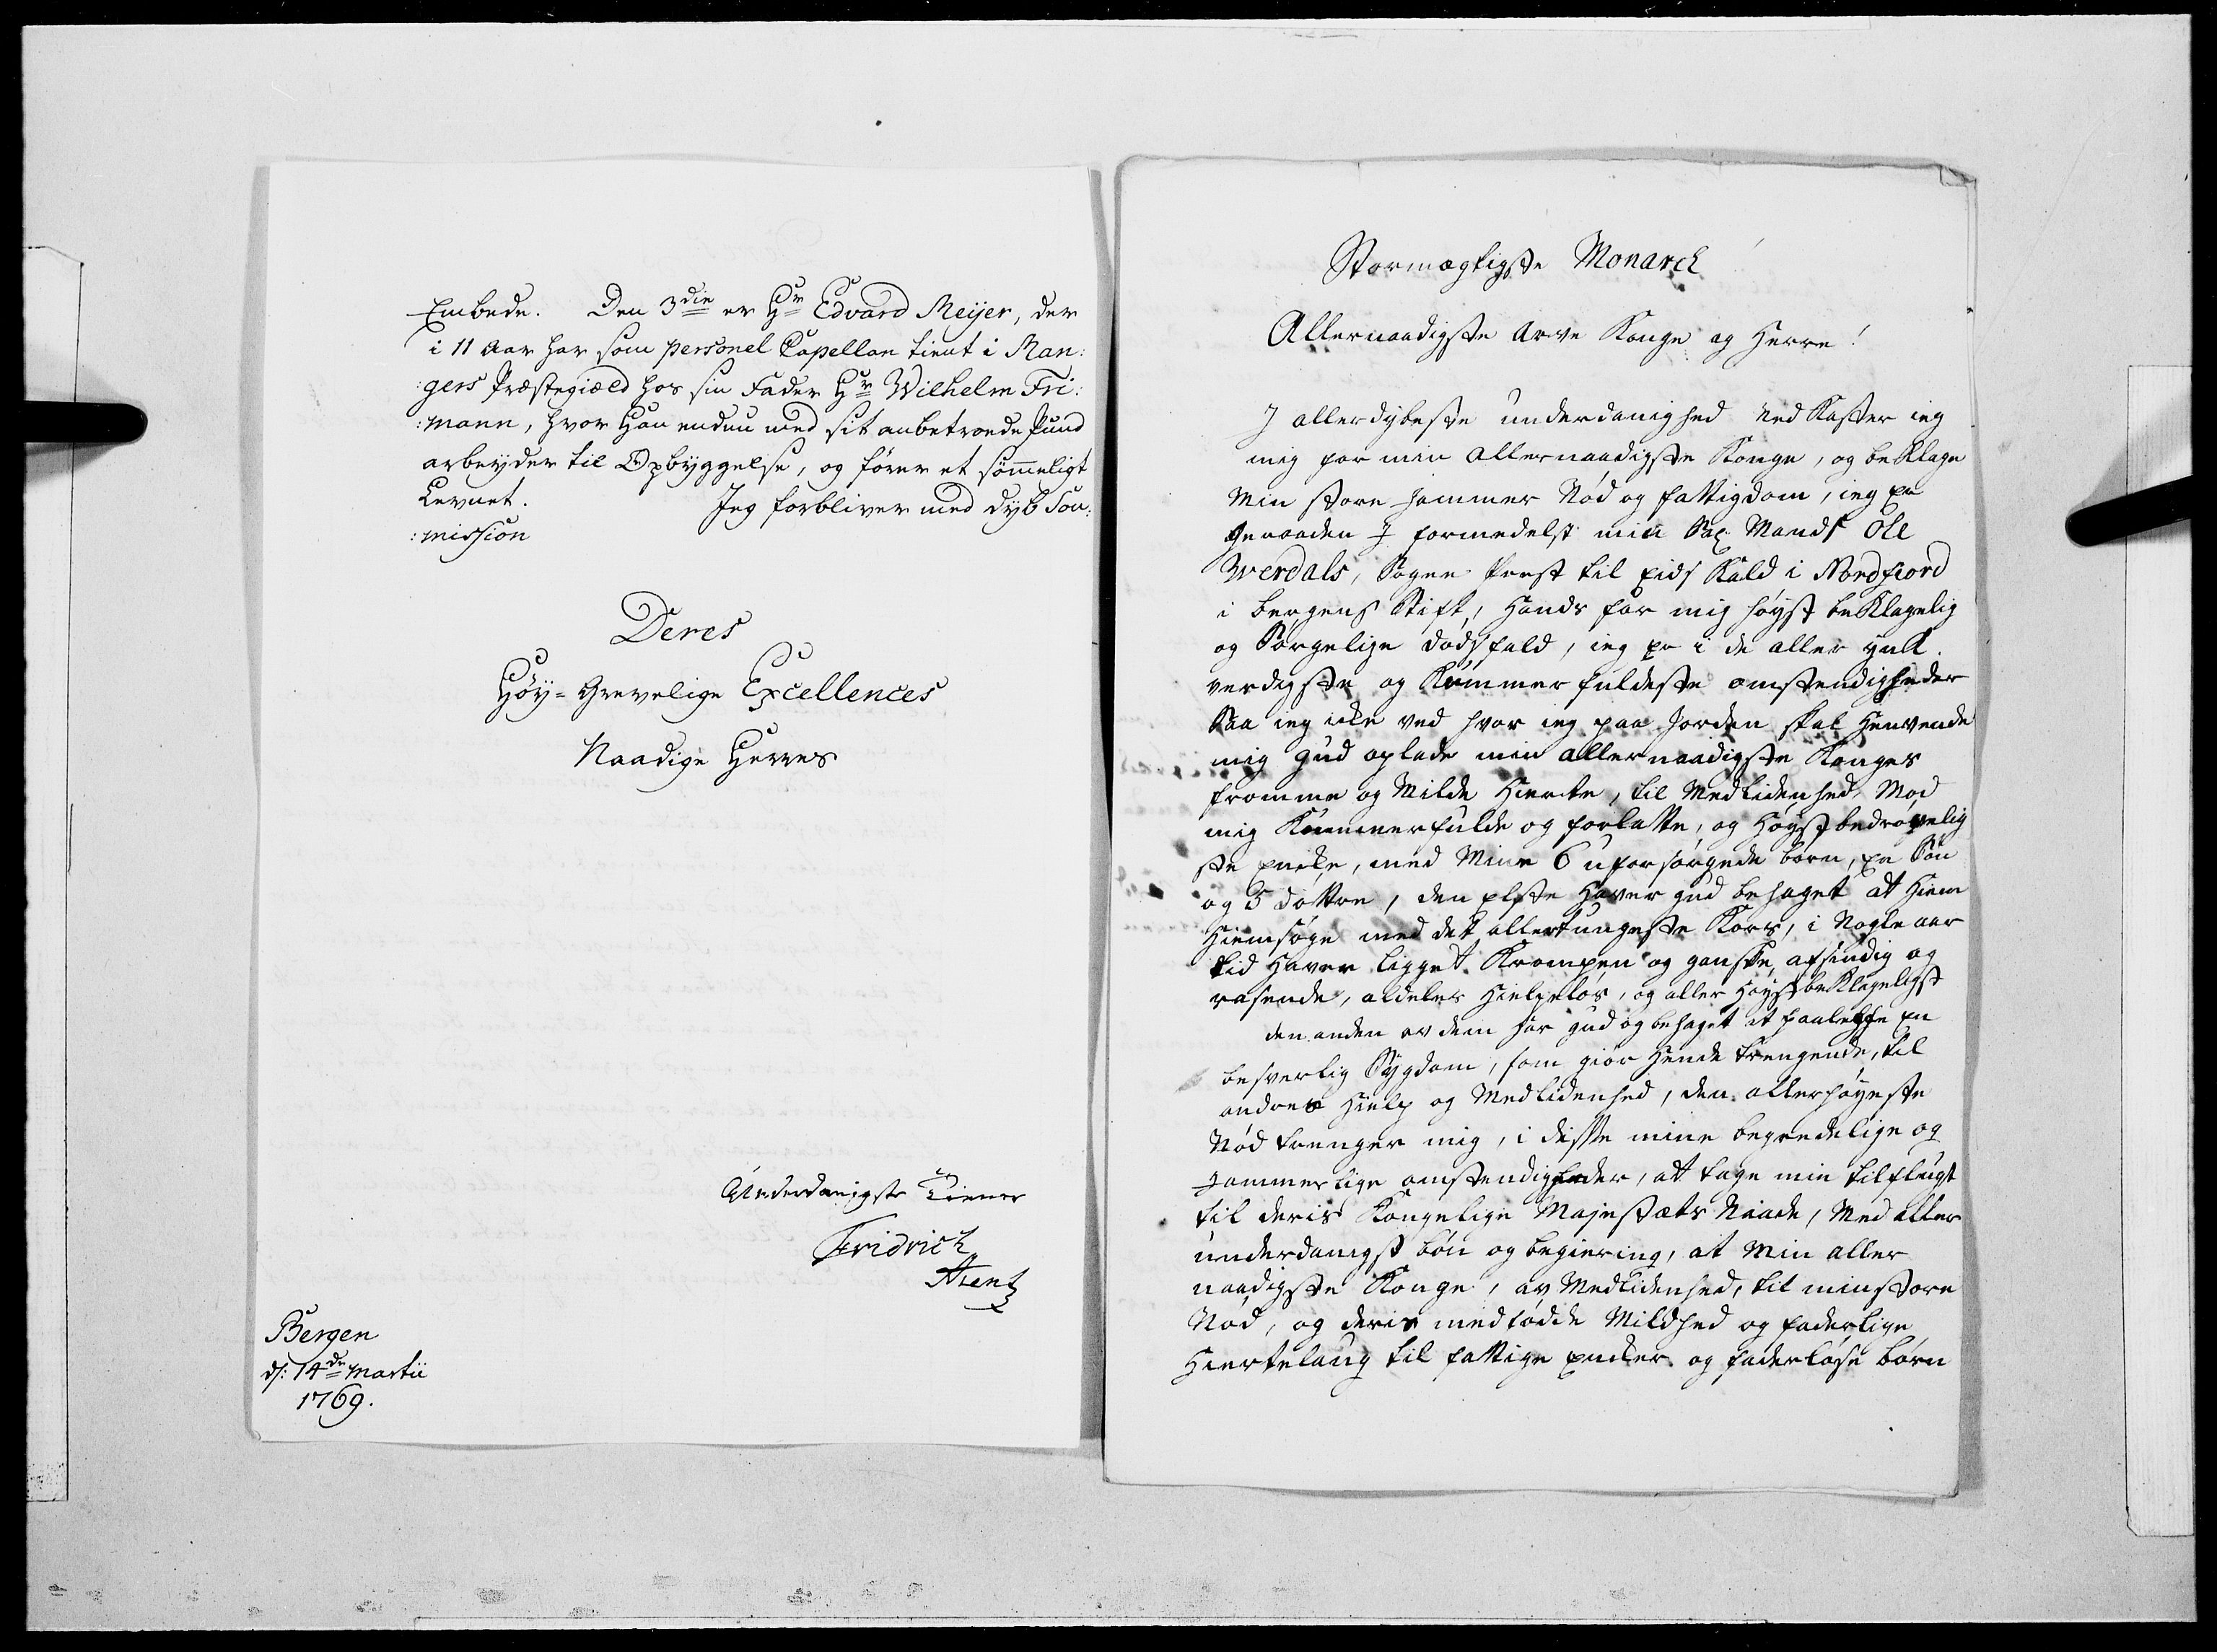 Embede. Den 3die er Hr Edvard Meijer, der
i 11 Aar har som personel Capellan tient i Man:
:gers Præstegiæld hos sin Fader Hr Wilhelm Fri:
:mann, hvor Han endnu med sit anbetroede Pund
arbeyder til Opbyggelse, og fører et sømmeligt
Levnet. Jeg forbliver med dyb Sou:
:mission
Deres
Høy-Grevelige Excellences
Naadige Herres
Underdanigste Tiener
Fridrich
Arentz
Bergen
d: 14de Martii
1769.
Stormægtigste Monarch
Allernaadigste Arve Konge og Herre!
I allerdybeste underdanighed ned Kaster ieg
mig for min Allernaadigste Konge, og beklage
Min store Jammer Nød og fattigdom, ieg er
geraaden I formedelst min Sal. Mands Ole
Werdals, Sogne Prest til Eids Kald i Nordfiord
i bergens Stift, Hands for mig høyst beklagelig
og Sørgelige dødsfald, ieg er i de aller ynk
verdigste og Kummerfuldeste omstendigheder
Saa ieg icke ved hvor ieg paa Jorden skal Henvende
mig Gud oplade min allernaadigste Konges
fromme og Milde Hierte, til Medlidenhed, Mod
mig Kummerfulde og forlatte, og Høyst bedrøvelig
ste Encke, med Mine 6 uforsørgede børn, en Søn
og 5 døttre, den elste Haver gud behaget at Hiem
Hiemsøge med det allertungeste Kors, i Nogle aar
tid Haver ligget Krompen og ganske afsindig og
rasende, aldeles Hielpeløs, og aller Høyst beklageligst
den anden av dem har gud og behaget at paalegge en
besverlig Sygdom, som giør Hende trengende, til
andres Hielp og Medlidenhed, den allerhøyeste
Nød trenger mig, i disse mine begredelige og
Jammerlige omstendigheder, at tage min tilflugt
til deris Kongelige Majestæts Naade, Med aller
underdanigst bøn og begiering, at Min aller
naadigste Konge, av Medlidenhed, til min store
Nød, og deris medfødde Mildhed og faderlige
Hiertelaug til fattige Encker og faderløse børn